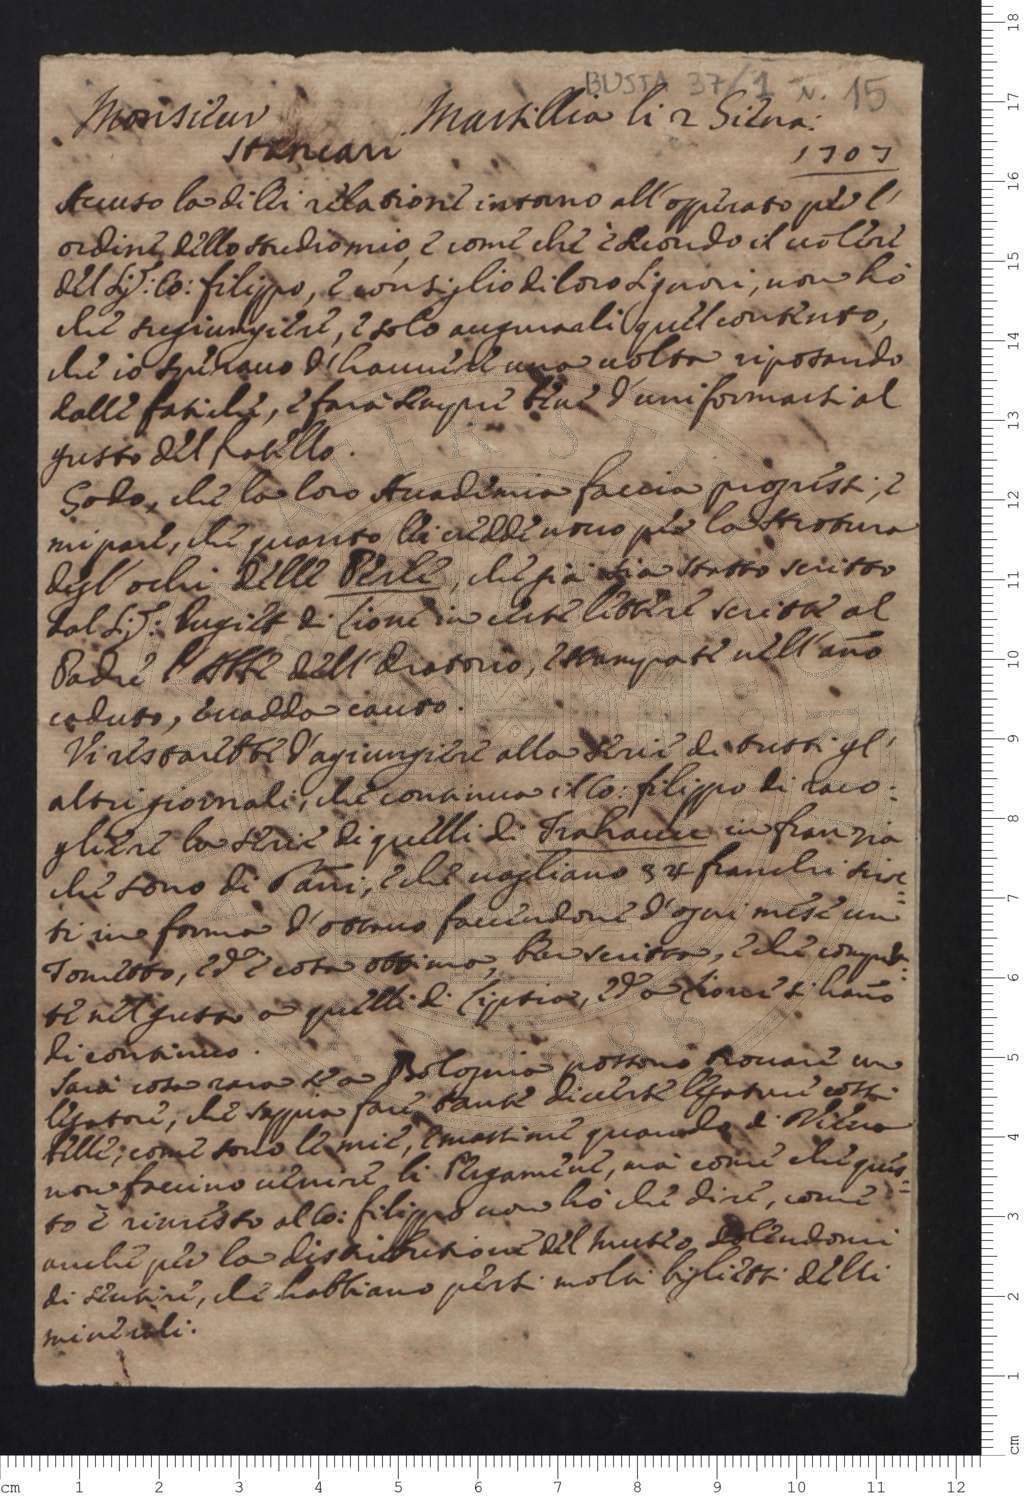 BUSTA 37/1 N. 15
Monsieur Marsillia li 2 Giena:
Stancari 1707
Accuso la di lei relatione intorno all'opperato per l'
ordine dello studio mio, e come che è secondo il volere
del Sig: Co: Filippo, e consiglio di loro Signori, non hò
che sugiungiere, e solo augurarli quel contento,
che io speravo d'havvere una volta riposando
dalle fatiche, e farà sempre bene d'uniformarsi al
gusto del fratello.
Godo, che la loro Accademia faccia progressi, e
mi pare, che quanto lei crede novo per la strotura
degl'ochi delle Perle, che già sia statto scritto
dal Sig: Pugiet di Lione in certe lettere scritte al
Padre l' dell'Oratorio, e stampate nell'año
caduto, e vadda cauto.
Vi restarebbe d'agiungiere alla serie di tutti gl'
altri giornali, che continua il Co: Filippo di raco:
gliere la serie di quelli di Trahaue in franzia
che sono di Pari, e che vagliano 34 franchi
ti in forma d'ottavo facendone d'ogni mese un
Tometto, ed è cosa ottima, ben scritta, e che
te nel gusto a quelli di Lipsia, ed a Lione si hano
di continuo.
Sarà cosa rara se a Bologna possono trovare un
legatore, che sappia fare tante diverse legature cossi
belle, come sono le mie, e massime quando di
non faccino venire li Pergamene, ma come che ques:
to è rimesso al Co: Filippo non hò che dire, come
anche per la distributione del museo dolendomi
di sentire, che habbiano persi molti biglietti delli
minerali.